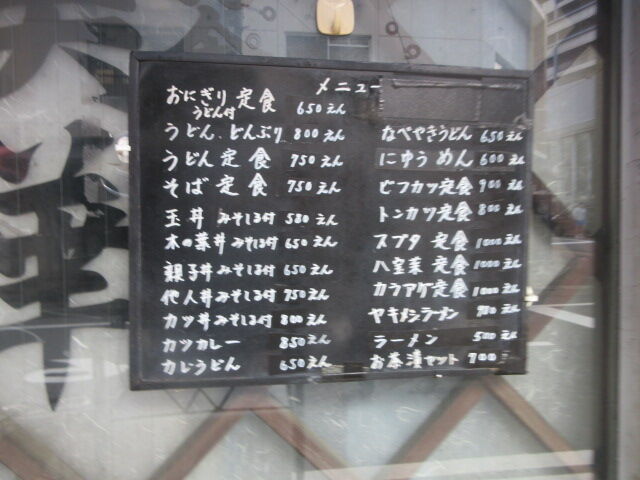 メニュー
おにぎり定食 650えん
うどん付
うどん、どんぶり 800えん
うどん定食 750えん
そば定食 750えん
玉丼 みそしる付 580えん
木の葉丼 みそしる付 650えん
親子丼 みそしる付 650えん
他人丼 みそしる付 750えん
カツ丼 みそしる付 800えん
カツカレー 850えん
カレうどん 650えん
なべやきうどん 650えん
にゅうめん 600えん
ビフカツ定食 900えん
トンカツ定食 800えん
スブタ定食 1000えん
八宝菜定食 1000えん
カラアゲ定食 1000えん
ヤキメシラーメン えん
ラーメン 500えん
お茶漬セット 700
華